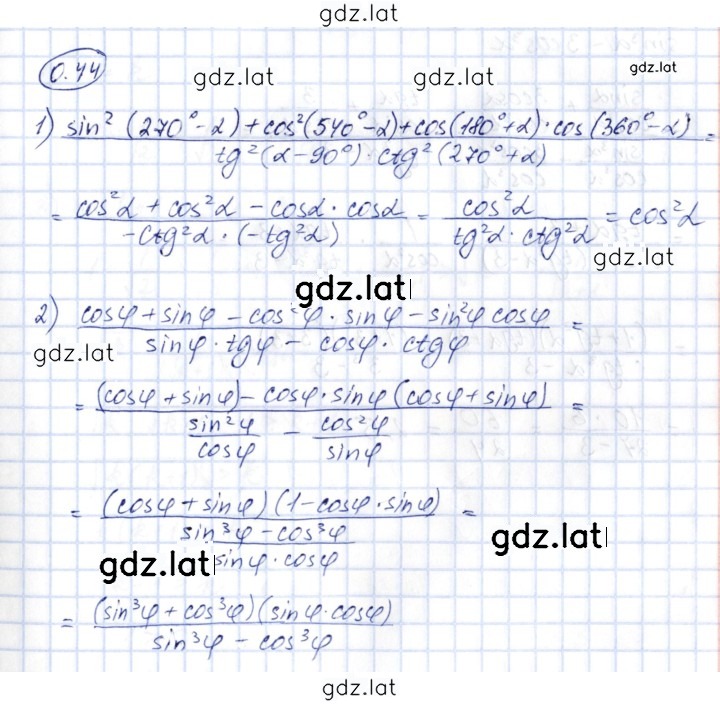 gdz.lat
0.44
gdz.lat gdz.lat gdz.lat
1) sin² (270° - α) + cos² (540° - α) + cos (180° + α) · cos (360° - α) =
tg² (α - 90°) · ctg² (270° + α)
= cos²α + cos²α - cosα · cosα = cos²α = cos²α
-ctg²α · (-tg²α) tg²α · ctg²α
gdz.lat
gdz.lat
2) cosφ + sinφ - cos²φ · sinφ - sin²φ cosφ =
sinφ · tgφ - cosφ · ctgφ
gdz.lat
= (cosφ + sinφ) - cosφ · sinφ (cosφ + sinφ) =
sin²φ - cos²φ
cosφ sinφ
= (cosφ + sinφ) (1 - cosφ · sinφ) =
sin³φ - cos³φ
sinφ · cosφ
gdz.lat gdz.lat
= (sin³φ + cos³φ) (sinφ · cosφ)
sin³φ - cos³φ
gdz.lat